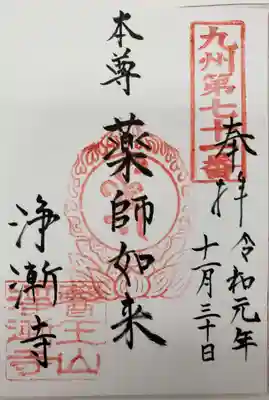 九州第七十一番
奉拝
令和元年
十一月三十日
本尊
薬師如来
浄漸寺
醫王山